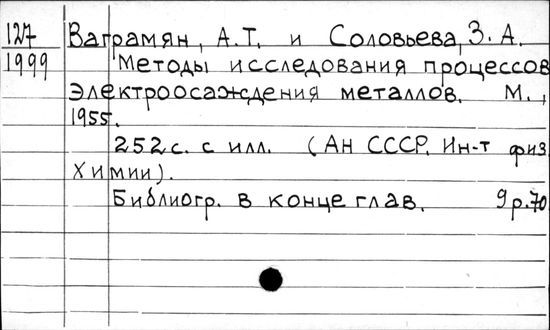 127 Ваграмян, А.Т. и Соловьева, З. А.
1999 Методы исследования процессов
электроосаждения металлов. М.,
1955.
252 с. с илл. (АН СССР. Ин-т физ.
химии).
Библиогр. в конце глав. 9 р. 70